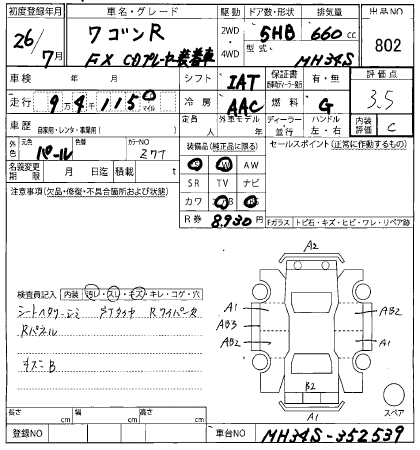 初度登録年月 車名・グレード 駆動 ドア数・形状 排気量 出品NO
26/7月 ワゴンR 2WD 4WD 5HB 660cc 802
FX CDプレーヤ装着車 型式 MH34S
車検 年 月 シフト IAT 保証書 有・無 評価点
走行 9万4千1150 マイル 冷房 AAC 燃料 G 3.5
車歴 自家用・レンタ・事業用( ) 定員 人 外車モデル 年 ディーラー・並行 ハンドル 左・右 内装評価 C
外色 元色 パール 色替 カラーNO Z7T 装備品(純正品に限る) セールスポイント(正常に作動するもの)
PS PW AW
名義変更期限 月 日迄 積載 t SR TV ナビ
注意事項(欠品・修復・不具合箇所および状態) カワ
R券 8,930円 Fガラス トビ石・キズ・ヒビ・ワレ・リペア跡
A2
検査員記入 内装 汚レ・スレ・キズ・キレ・コゲ・穴
A1 AB2
AB3
AB2 A1
シートヘタリ・シミ Rワイパー欠
Rパネル
キズこB
B2
A1
スペア
長さ cm 幅 cm 高さ cm
登録NO 車台NO MH34S-352539